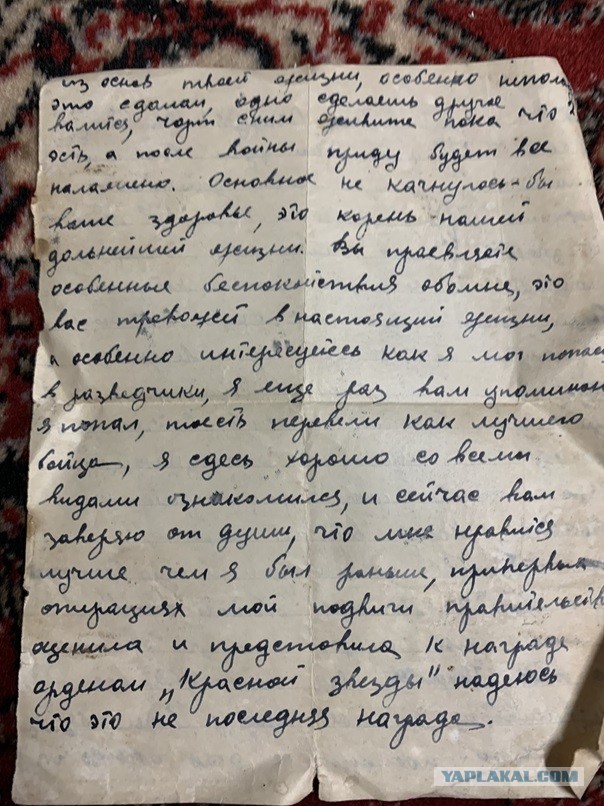 из основ твоей жизни, особенно
это сделал, одно сделаешь другое
валится, чорт сним живите пока что
есть, а после войны приду будет все
налажено. Основное не качнулось-бы
ваше здоровье, это корень нашей
дольнейшей жизни. Вы праевляете
особенные беспокойствия обомне, это
вас тревожей в настоящий жизни,
а особенно интересуетесь как я мог попасть
в разведчики, я еще раз вам упоминаю
я попал, тоесть перевели как лучшего
бойца, я сдесь хорошо со всеми
видами ознакомился, и сейчас вам
заверяю от души, что мне нравится
лучше чем я был раньше, припервых
операциях мой подвиги правительство
оценила и предстовила к награде
орденом „Красной звезды" надеюсь
что это не последняя награда.
YAPLAKAL.COM